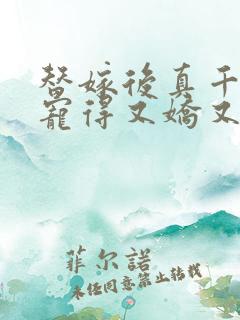 替嫁後真千
寵得又嬌又
菲尔諾
未经同意禁止转载